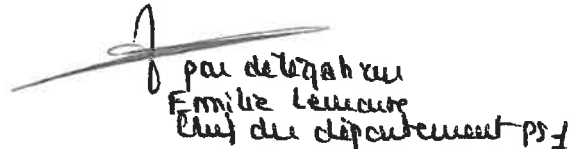 par delegation
Emilie Lemaire
Chef du département PS1